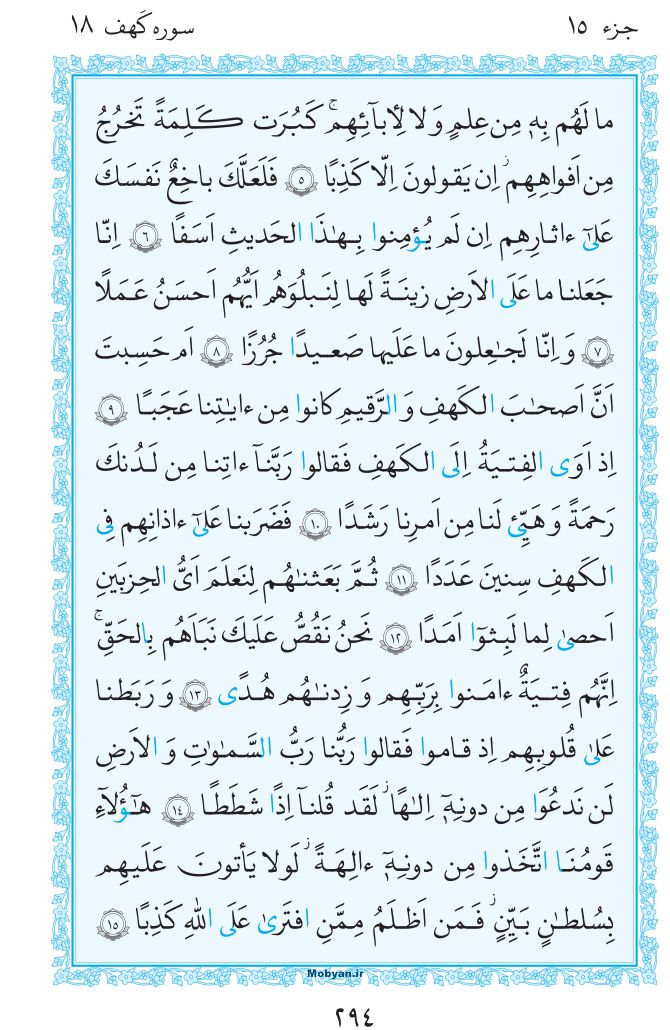 جزء ١٥
سوره کهف ١٨
ما لَهُم بِهٖ مِن عِلمٍ وَلا لِأبآئِهِمۚ كَبُرَت كَلِمَةً تَخرُجُ
مِن اَفواهِهِمۚ اِن يَقولونَ اِلّا كَذِبًا ٥ فَلَعَلَّكَ باخِعٌ نَفسَكَ
عَلىٰٓ ءاثارِهِم اِن لَم يُؤمِنوا بِهـٰذَا الحَديثِ اَسَفًا ٦ اِنّا
جَعَلنا ما عَلَى الاَرضِ زينَةً لَها لِنَبلُوَهُم اَيُّهُم اَحسَنُ عَمَلًا
٧ وَاِنّا لَجـٰعِلونَ ما عَلَيها صَعيدًا جُرُزًا ٨ اَم حَسِبتَ
اَنَّ اَصحـٰبَ الكَهفِ وَالرَّقيمِ كانوا مِن ءايـٰتِنا عَجَبًا ٩
اِذ اَوَى الفِتيَةُ اِلَى الكَهفِ فَقالوا رَبَّنآ ءاتِنا مِن لَدُنكَ
رَحمَةً وَهَيِّئ لَنا مِن اَمرِنا رَشَدًا ١٠ فَضَرَبنا عَلىٰٓ ءاذانِهِم فِى
الكَهفِ سِنينَ عَدَدًا ١١ ثُمَّ بَعَثنـٰهُم لِنَعلَمَ اَىُّ الحِزبَينِ
اَحصىٰ لِما لَبِثوٓا اَمَدًا ١٢ نَحنُ نَقُصُّ عَلَيكَ نَبَاَهُم بِالحَقِّۚ
اِنَّهُم فِتيَةٌ ءامَنوا بِرَبِّهِم وَزِدنـٰهُم هُدًى ١٣ وَرَبَطنا
عَلىٰ قُلوبِهِم اِذ قاموا فَقالوا رَبُّنا رَبُّ السَّمـٰوٰتِ وَالاَرضِ
لَن نَدعُوَا مِن دونِهٖٓ اِلـٰهًاۖ لَقَد قُلنآ اِذًا شَطَطًا ١٤ هـٰٓؤُلآءِ
قَومُنَا اتَّخَذوا مِن دونِهٖٓ ءالِهَةًۖ لَولا يَأتونَ عَلَيهِم
بِسُلطـٰنٍ بَيِّنٍۖ فَمَن اَظلَمُ مِمَّنِ افتَرىٰ عَلَى اللّٰهِ كَذِبًا ١٥
Mobyan.ir
٢٩٤